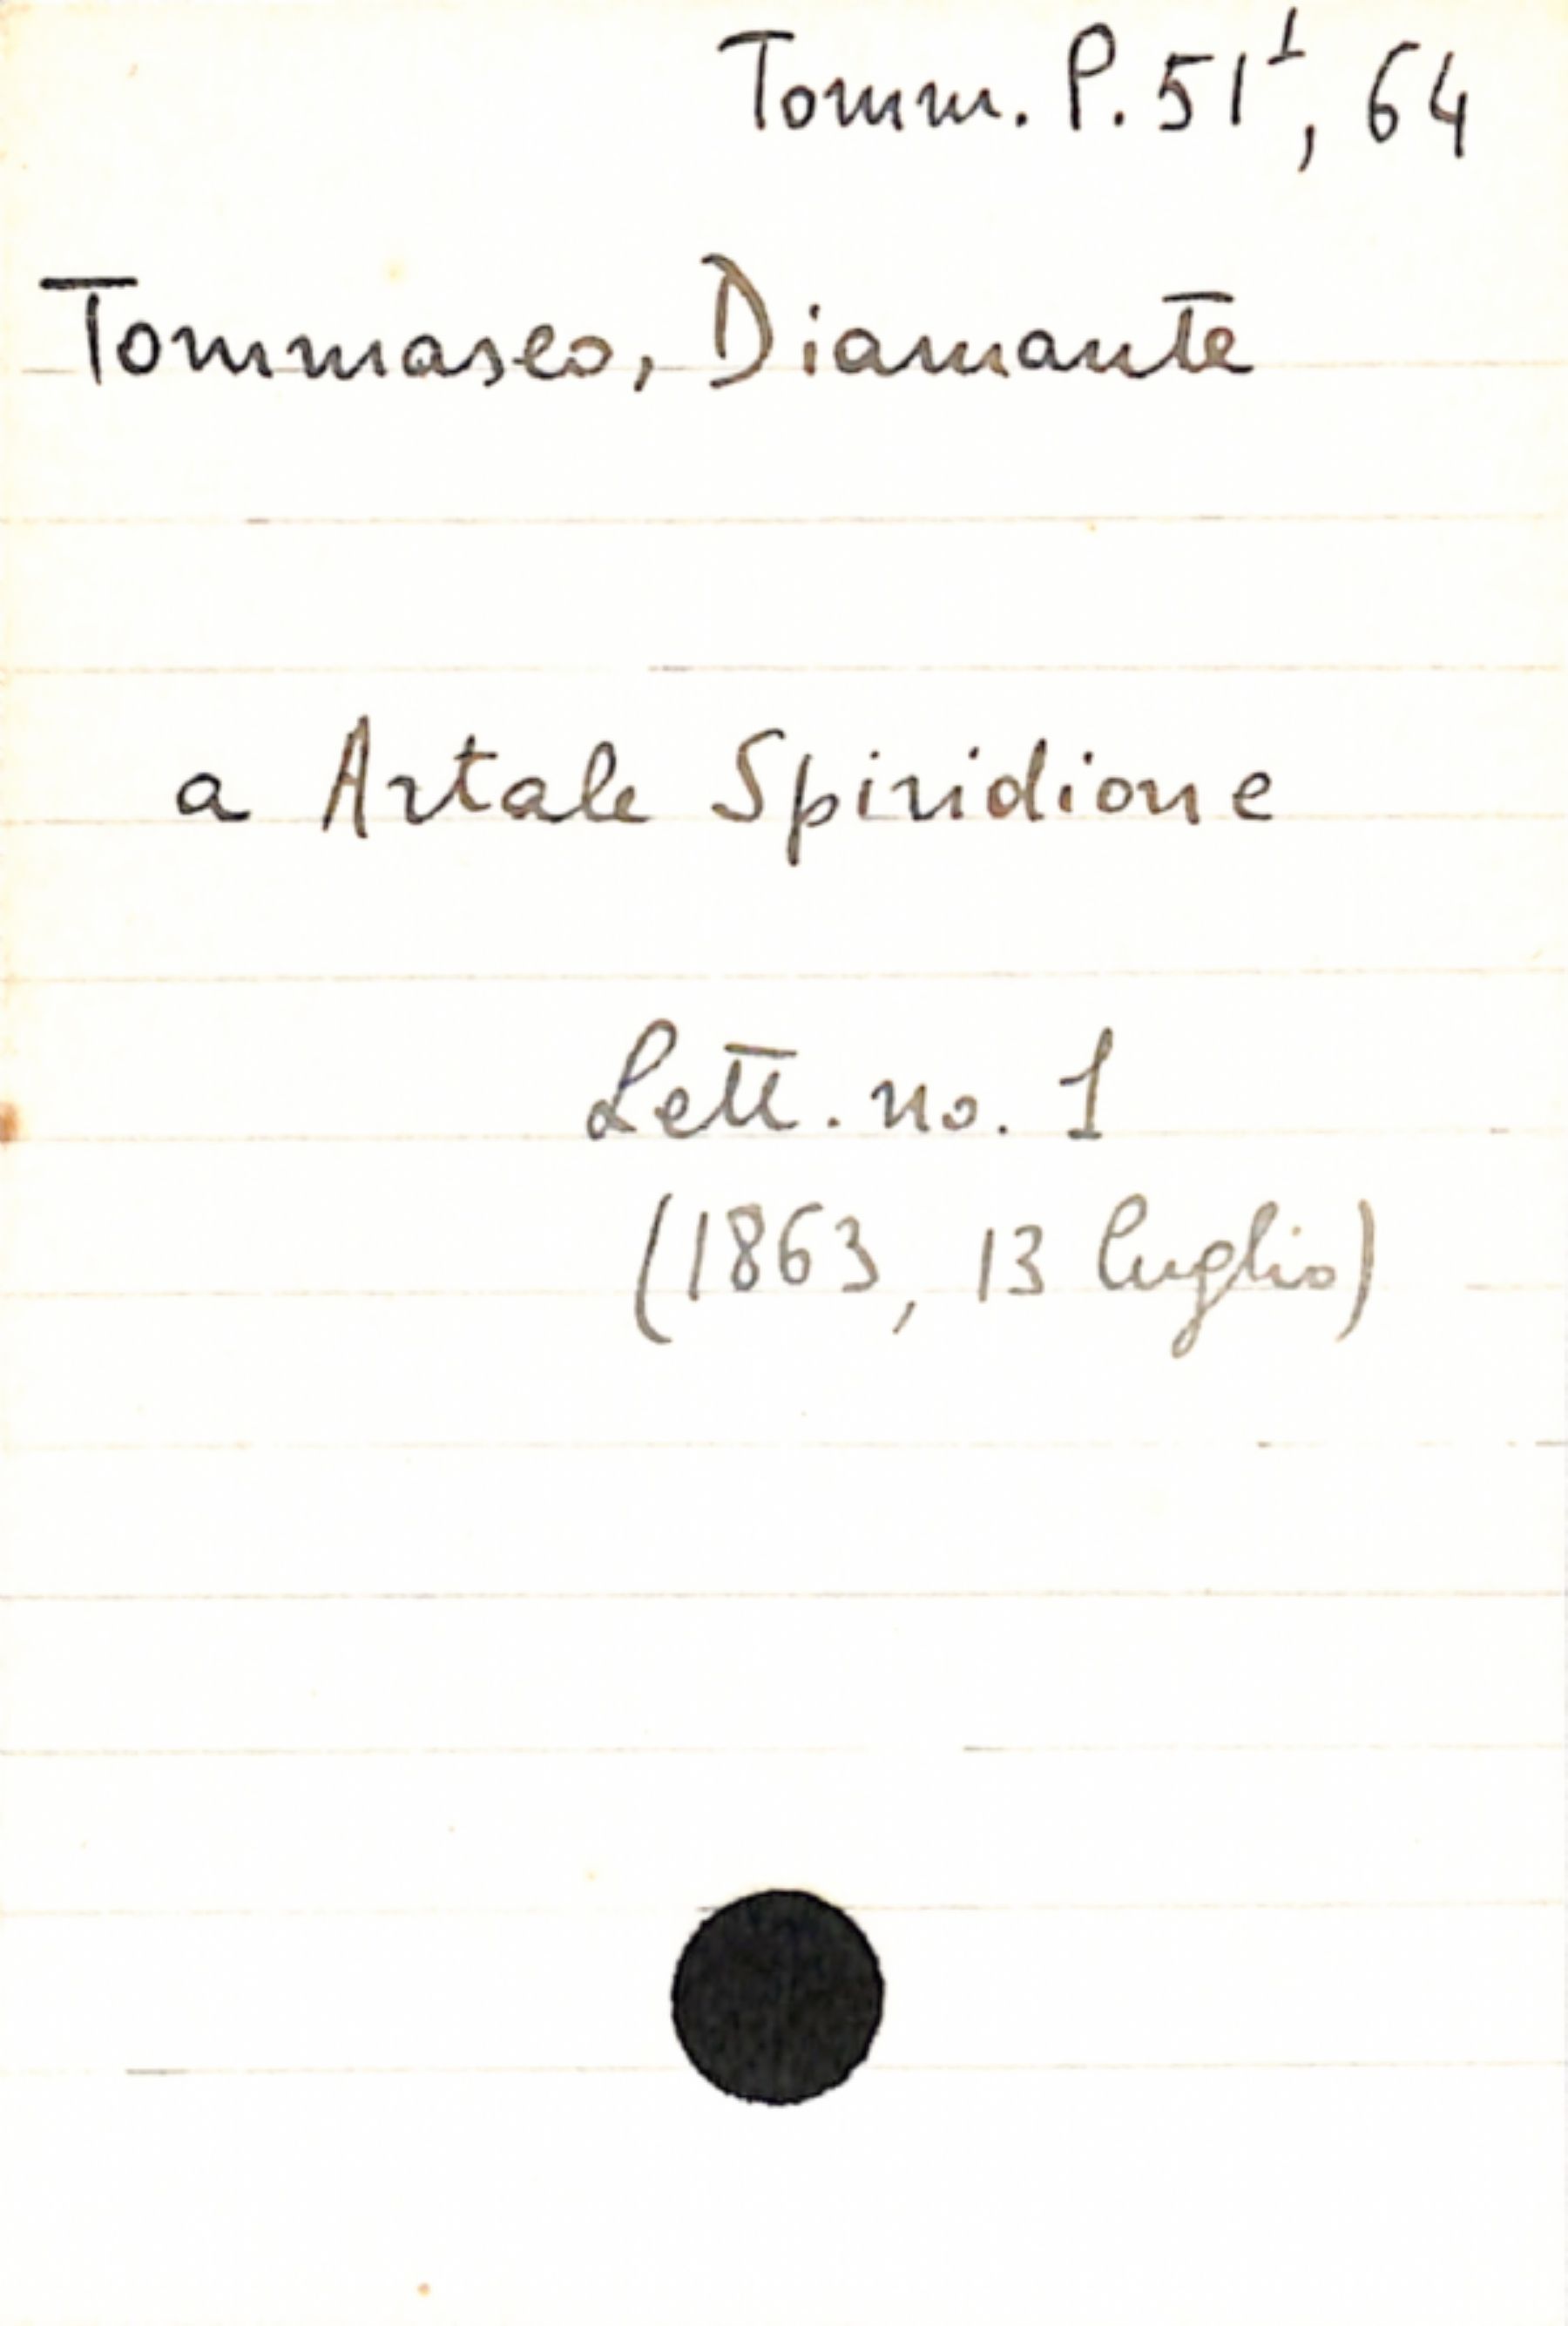 Tomm. P. 51¹, 64
Tommaseo, Diamante
a Artale Spiridione
Lett. no. 1
(1863, 13 luglio)